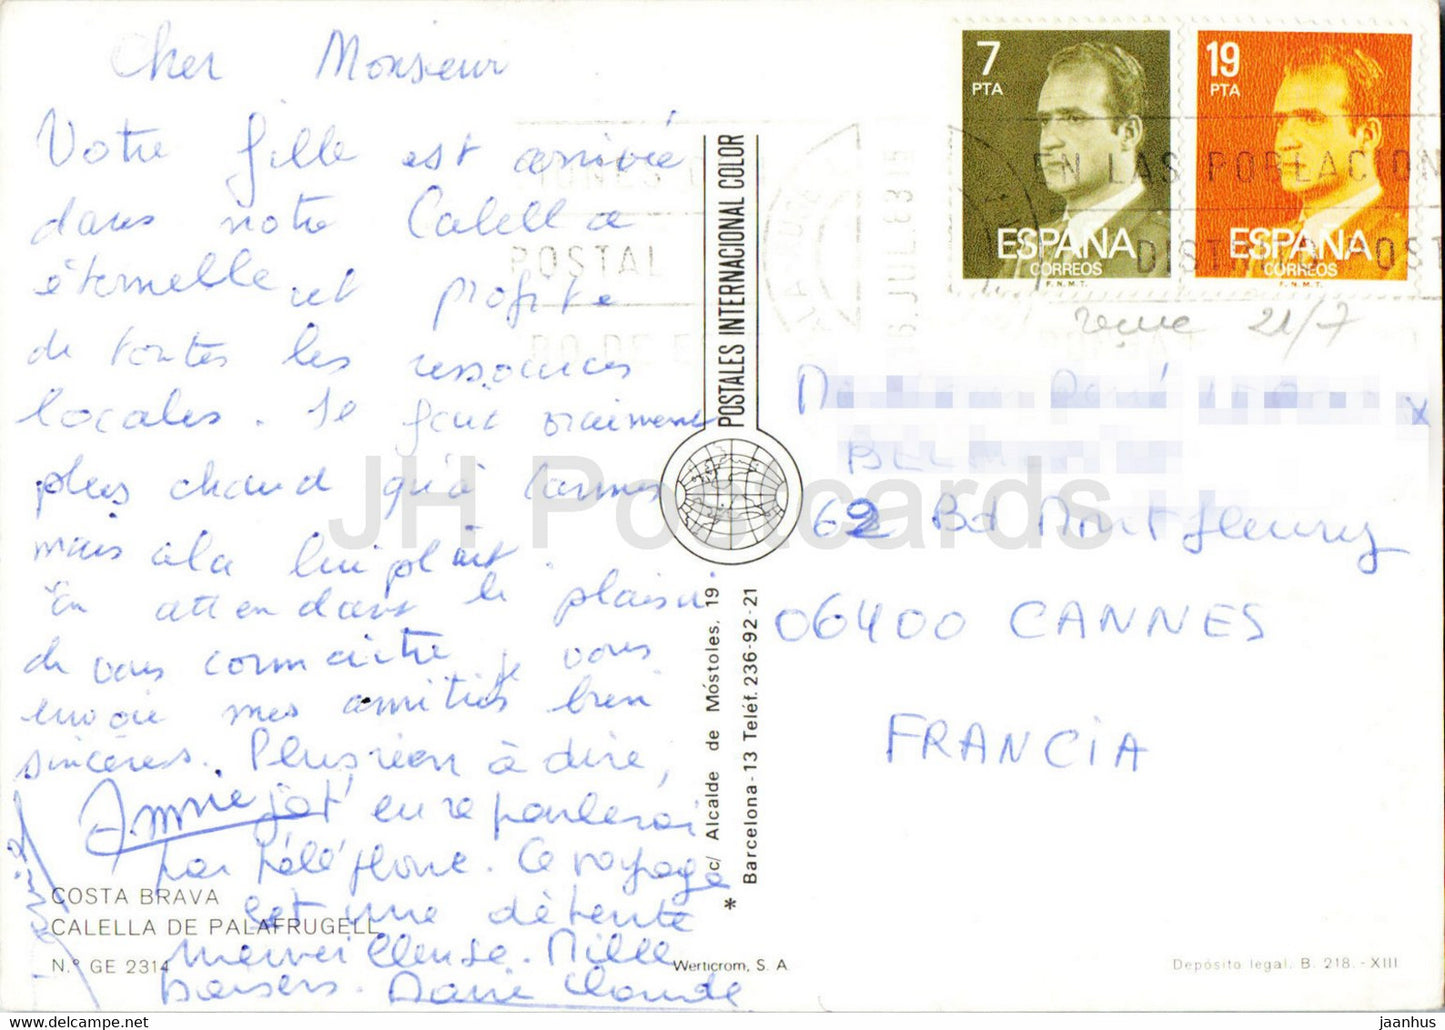 Cher Monsieur
Votre fille est arrivée
dans notre Calella
éternelle et profite
de toutes les ressources
locales. Il fait vraiment
plus chaud qu'à Cannes
mais cela lui plaît.
En attendant le plaisir
de vous connaître, je vous
envoie mes amitiés bien
sincères. Plus rien à dire,
Annie
j't'en reparlerai
par téléphone. Ce voyage
est une détente
merveilleuse. Mille
baisers. Marie Claude
COSTA BRAVA
CALELLA DE PALAFRUGELL
N.º GE 2314
POSTALES INTERNACIONAL COLOR
c/ Alcalde de Móstoles, 19
Barcelona-13 Teléf. 236-92-21
*
Werticrom, S. A
7
PTA
ESPAÑA
CORREOS
F.N.M.T.
19
PTA
ESPAÑA
CORREOS
F.N.M.T.
EN LAS POBLACION
POSTAL
JUL. 83
reçue 21/7
62 Bd Montfleury
06400 CANNES
FRANCIA
Depósito legal. B. 218.-XIII
JH Postcards
https://www.hippostcard.com
jaanhus